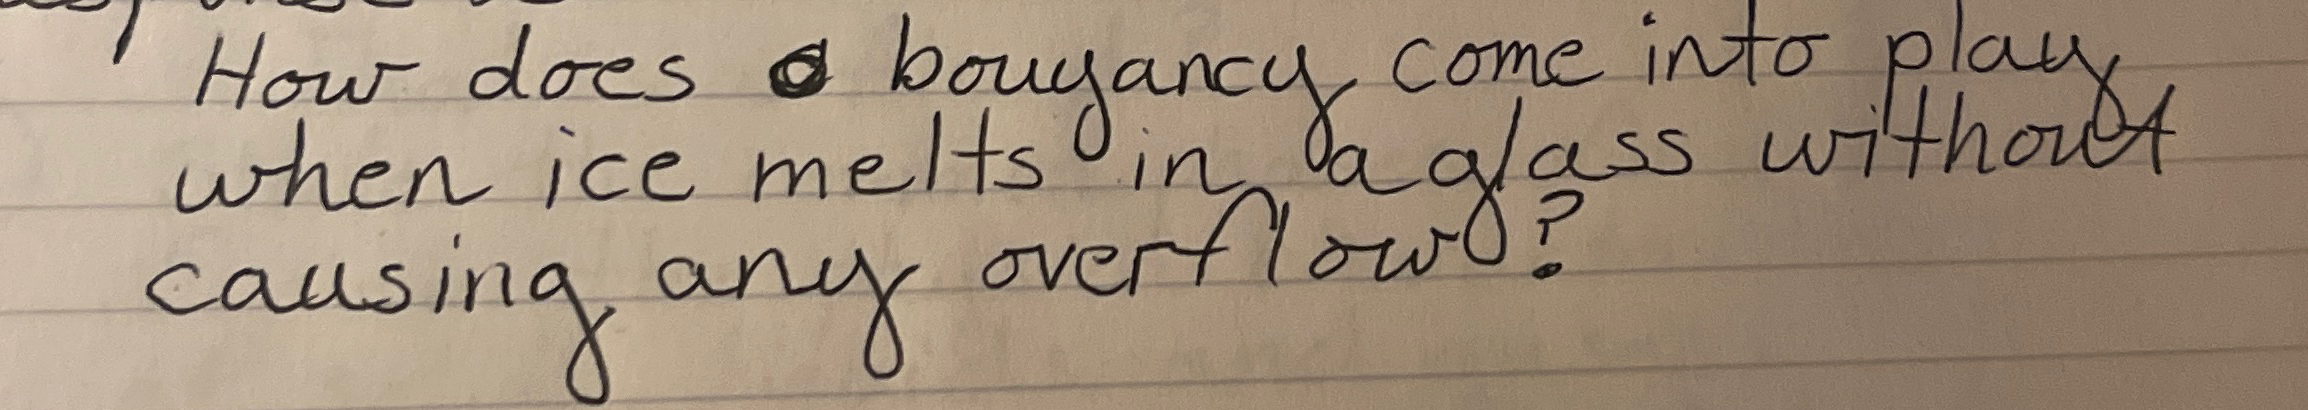 How does bouyancy come into play
when ice melts in a glass without
causing any overflow?